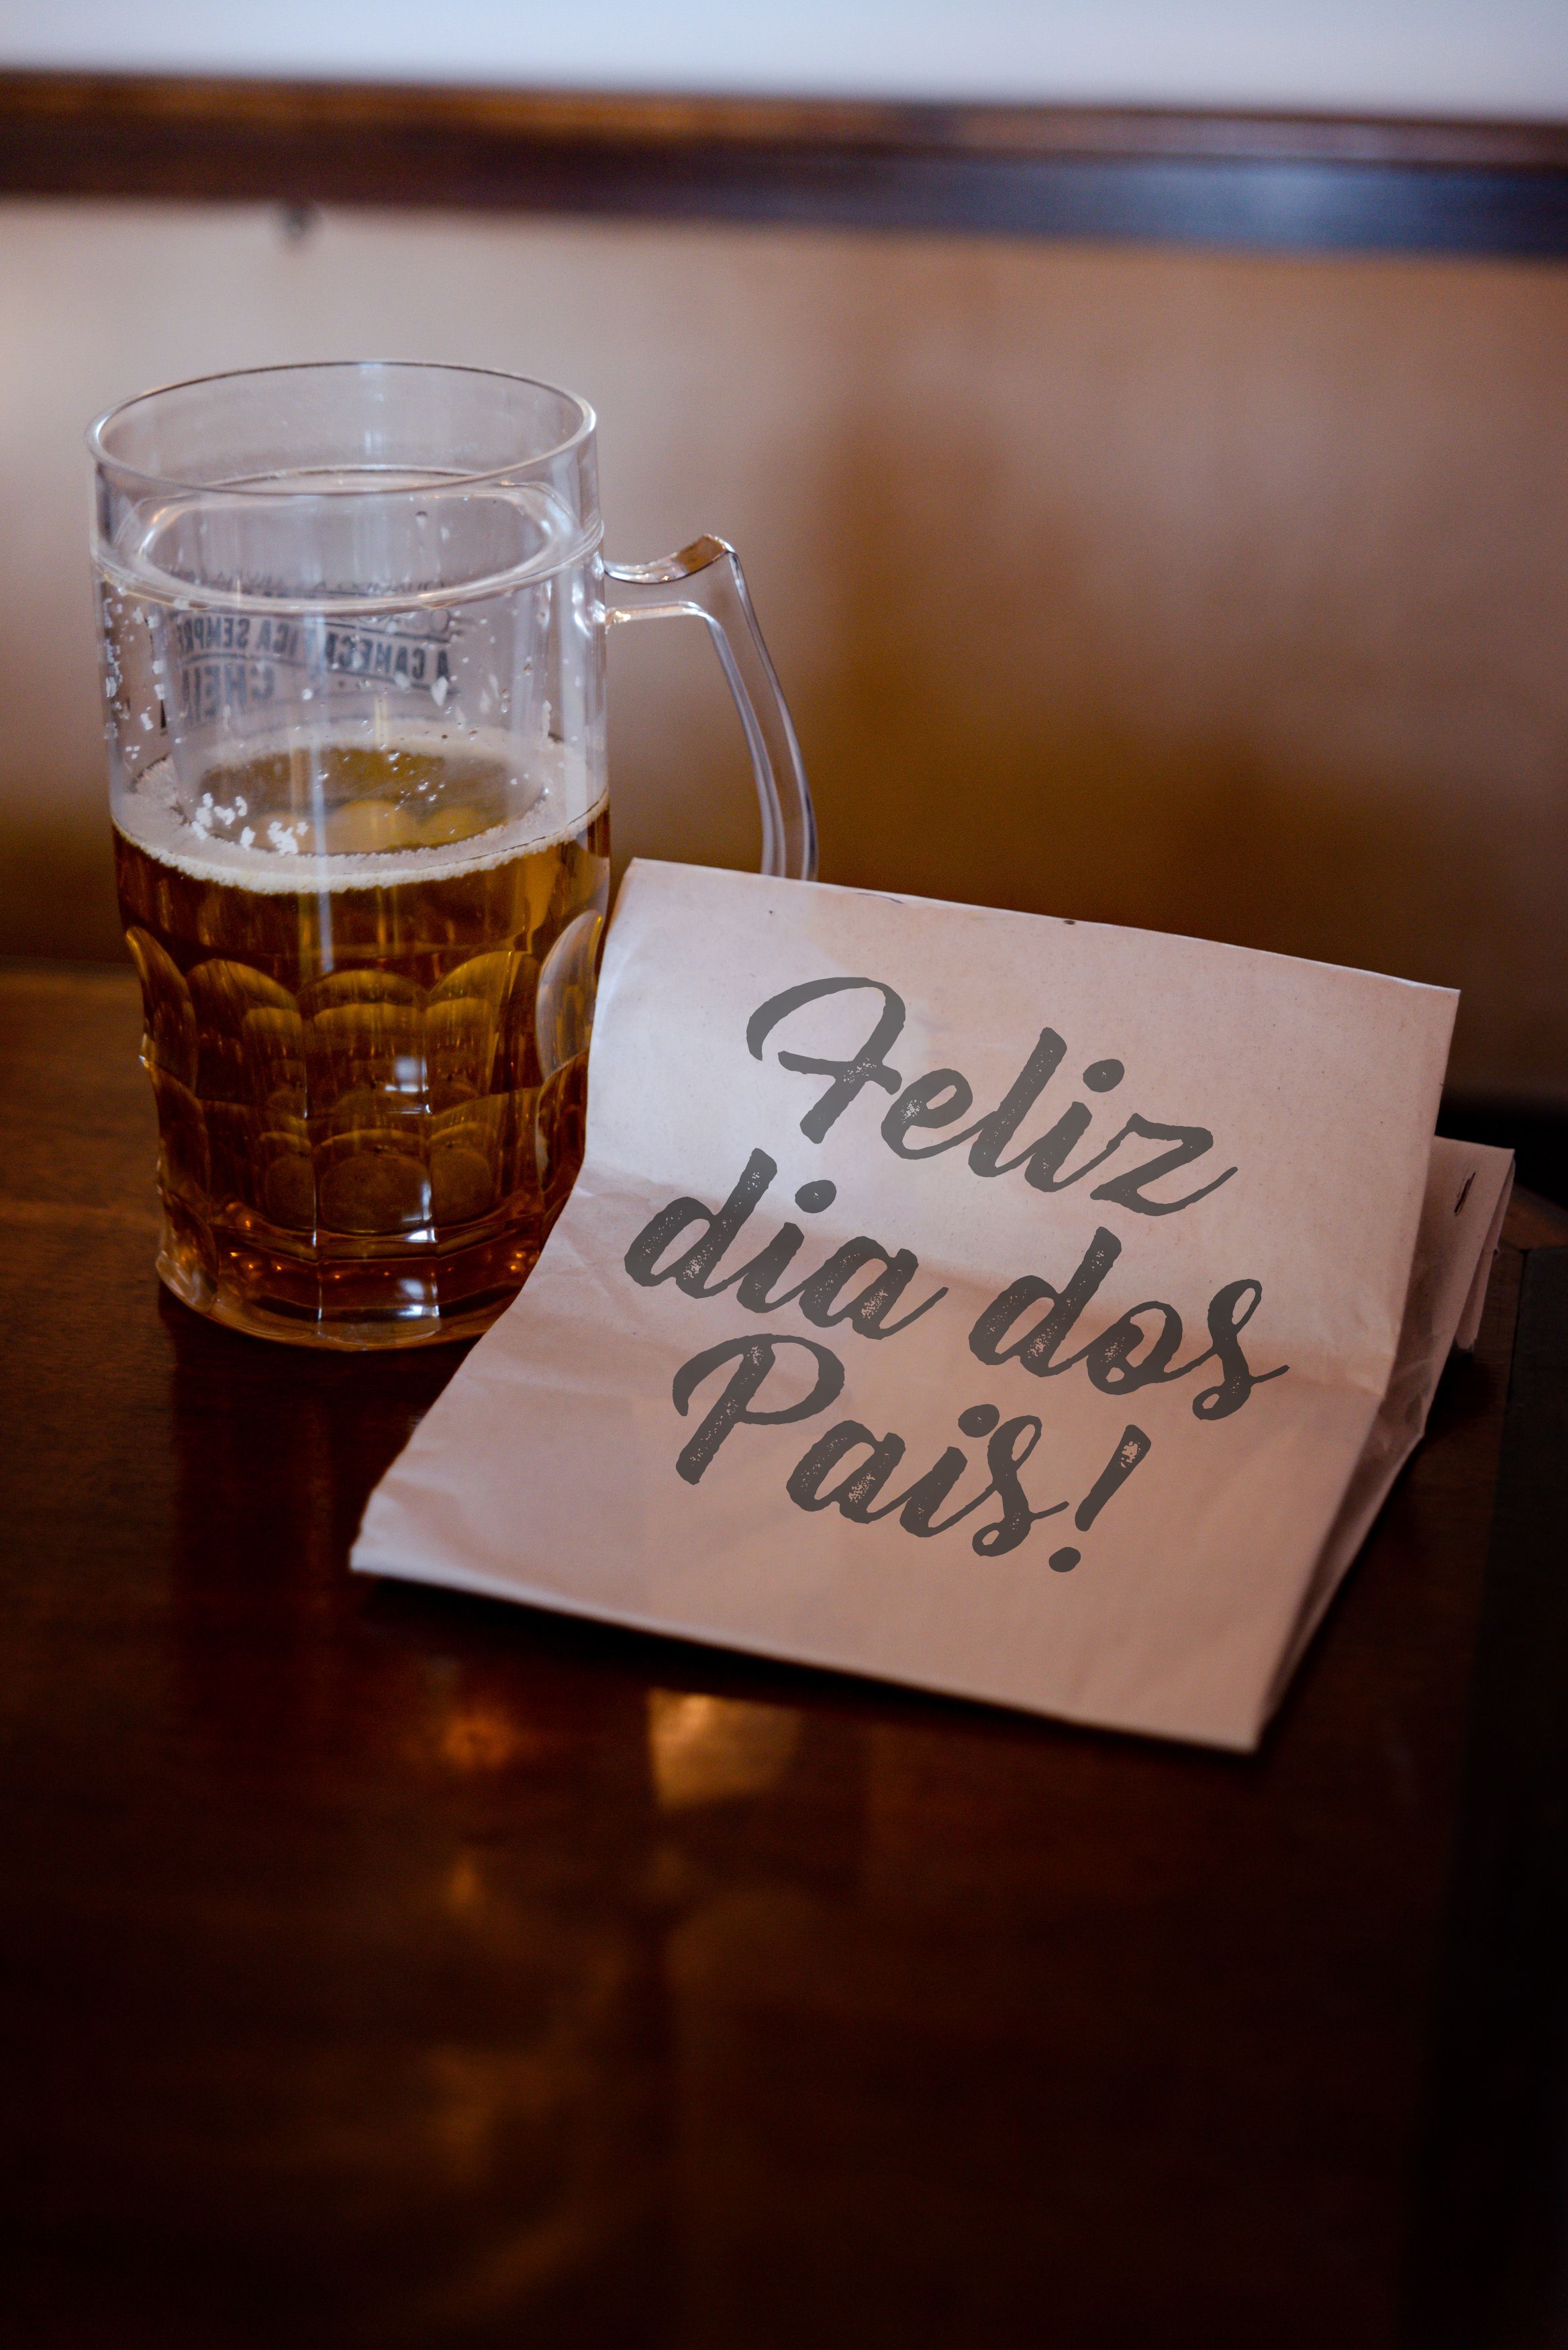 A CANECA FICA SEMPRE
CHEIA
Feliz
dia dos
Pais!